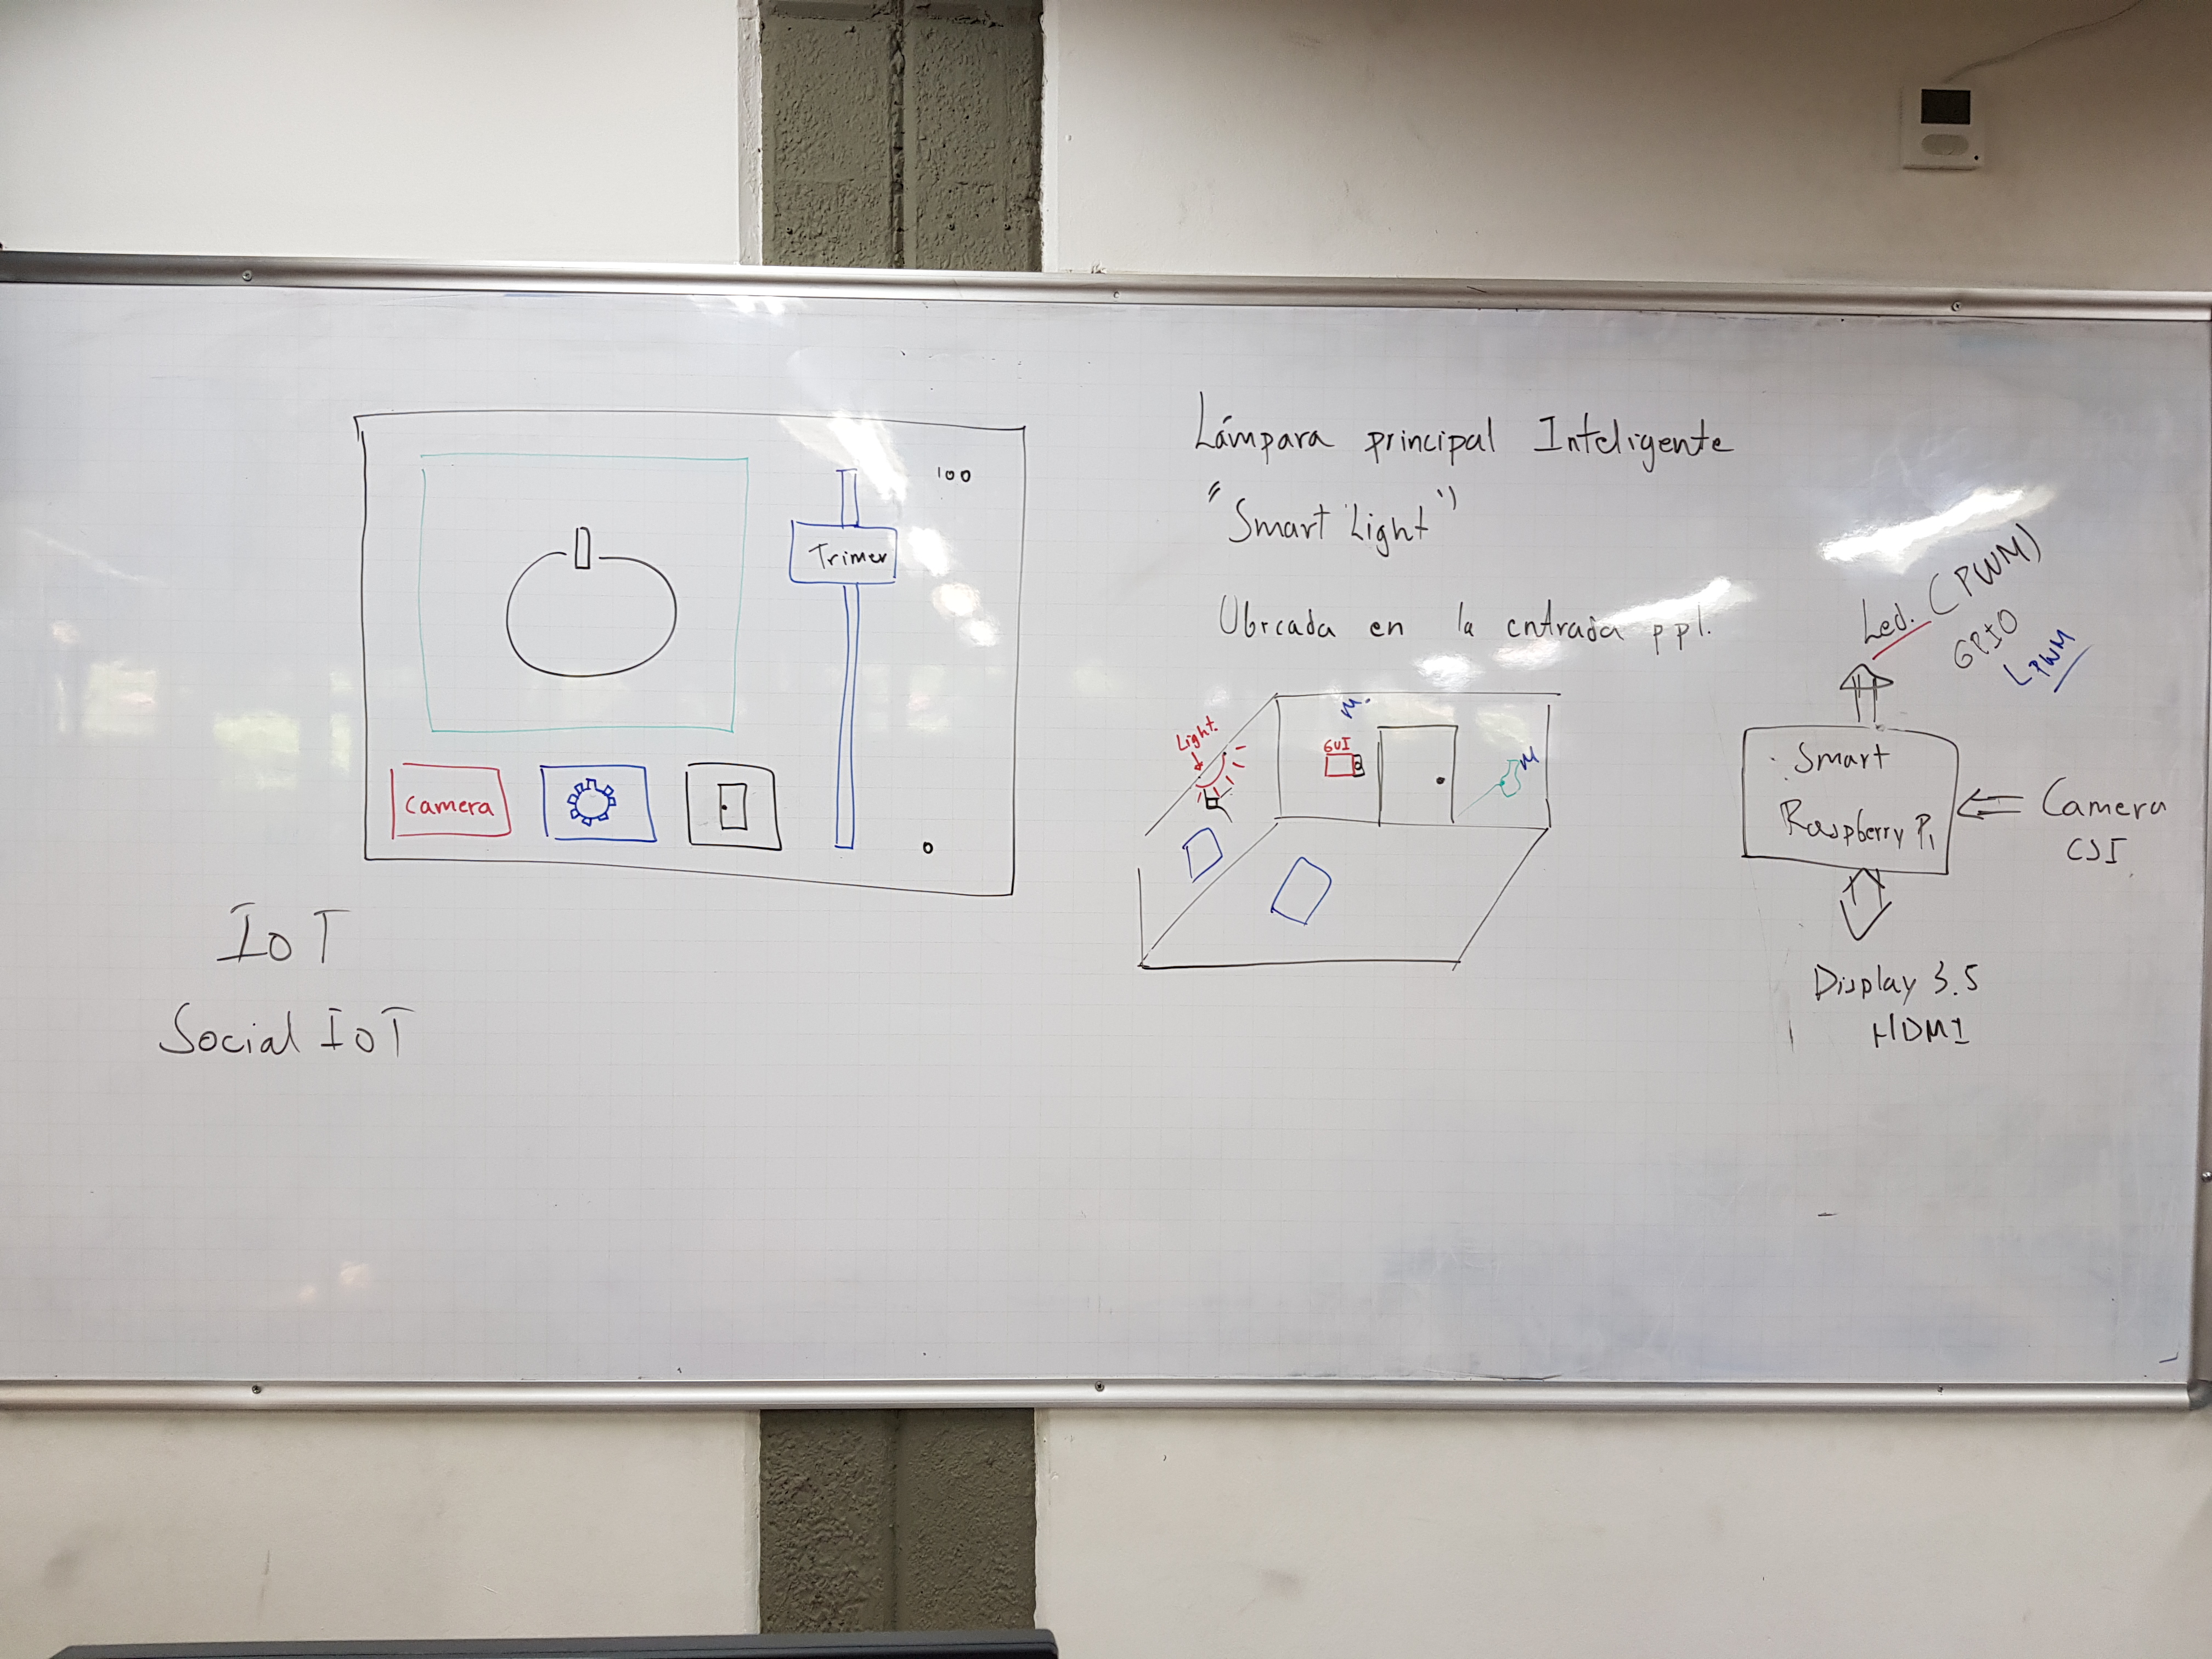 100
Trimer
Camera
0
IoT
Social IoT
Lámpara principal Inteligente
"Smart Light"
Ubicada en la entrada ppl.
Light.
GUI
M.
M
Led. (PWM)
GPIO
PWM
Smart
Raspberry Pi
Camera
CSI
Display 3.5
HDMI